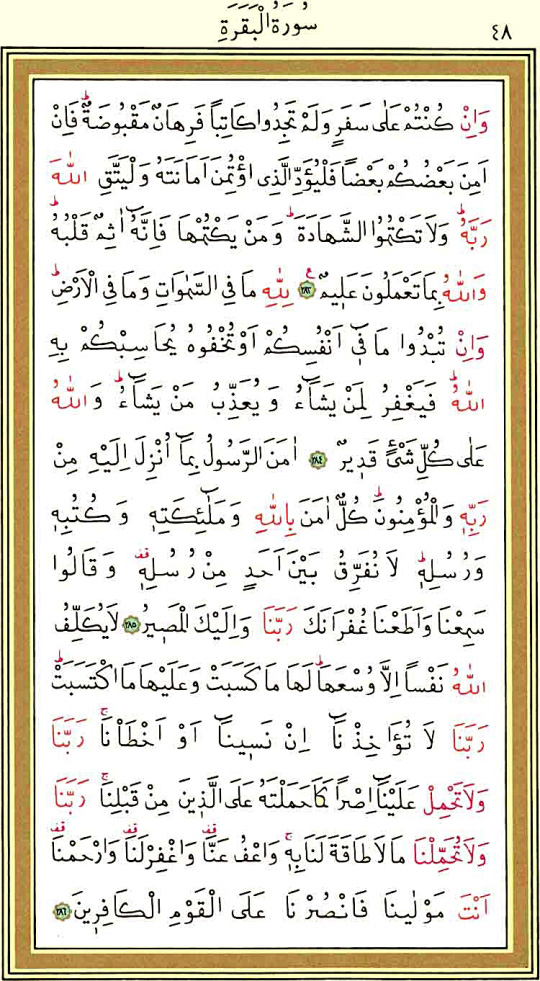 سُورَةُ الْبَقَرَةِ
٤٨
وَاِنْ كُنْتُمْ عَلٰى سَفَرٍ وَلَمْ تَجِدُوا كَاتِباً فَرِهَانٌ مَقْبُوضَةٌۜ فَاِنْ
اَمِنَ بَعْضُكُمْ بَعْضاً فَلْيُؤَدِّ الَّذِي اؤْتُمِنَ اَمَانَتَهُ وَلْيَتَّقِ اللّٰهَ
رَبَّهُۜ وَلَا تَكْتُمُوا الشَّهَادَةَۜ وَمَنْ يَكْتُمْهَا فَاِنَّهُٓ اٰثِمٌ قَلْبُهُۜ
وَاللّٰهُ بِمَا تَعْمَلُونَ عَلِيمٌ۟ ﴿٢٨٣﴾ لِلّٰهِ مَا فِي السَّمٰوَاتِ وَمَا فِي الْاَرْضِۜ
وَاِنْ تُبْدُوا مَا فِٓي اَنْفُسِكُمْ اَوْ تُخْفُوهُ يُحَاسِبْكُمْ بِهِ
اللّٰهُۜ فَيَغْفِرُ لِمَنْ يَشَٓاءُ وَيُعَذِّبُ مَنْ يَشَٓاءُۜ وَاللّٰهُ
عَلٰى كُلِّ شَيْءٍ قَدِيرٌ ﴿٢٨٤﴾ اٰمَنَ الرَّسُولُ بِمَٓا اُنْزِلَ اِلَيْهِ مِنْ
رَبِّهِ وَالْمُؤْمِنُونَۜ كُلٌّ اٰمَنَ بِاللّٰهِ وَمَلٰٓئِكَتِهِ وَكُتُبِهِ
وَرُسُلِهِۜ لَا نُفَرِّقُ بَيْنَ اَحَدٍ مِنْ رُسُلِهِ۠ وَقَالُوا
سَمِعْنَا وَاَطَعْنَا غُفْرَانَكَ رَبَّنَا وَاِلَيْكَ الْمَصِيرُ ﴿٢٨٥﴾ لَا يُكَلِّفُ
اللّٰهُ نَفْساً اِلَّا وُسْعَهَاۜ لَهَا مَا كَسَبَتْ وَعَلَيْهَا مَا اكْتَسَبَتْۜ
رَبَّنَا لَا تُؤَاخِذْنَٓا اِنْ نَسِينَٓا اَوْ اَخْطَأْنَاۚ رَبَّنَا
وَلَا تَحْمِلْ عَلَيْنَٓا اِصْراً كَمَا حَمَلْتَهُ عَلَى الَّذِينَ مِنْ قَبْلِنَاۚ رَبَّنَا
وَلَا تُحَمِّلْنَا مَا لَا طَاقَةَ لَنَا بِهِۚ وَاعْفُ عَنَّا۠ وَاغْفِرْ لَنَا۠ وَارْحَمْنَا۠
اَنْتَ مَوْلٰينَا فَانْصُرْنَا عَلَى الْقَوْمِ الْكَافِرِينَ ﴿٢٨٦﴾